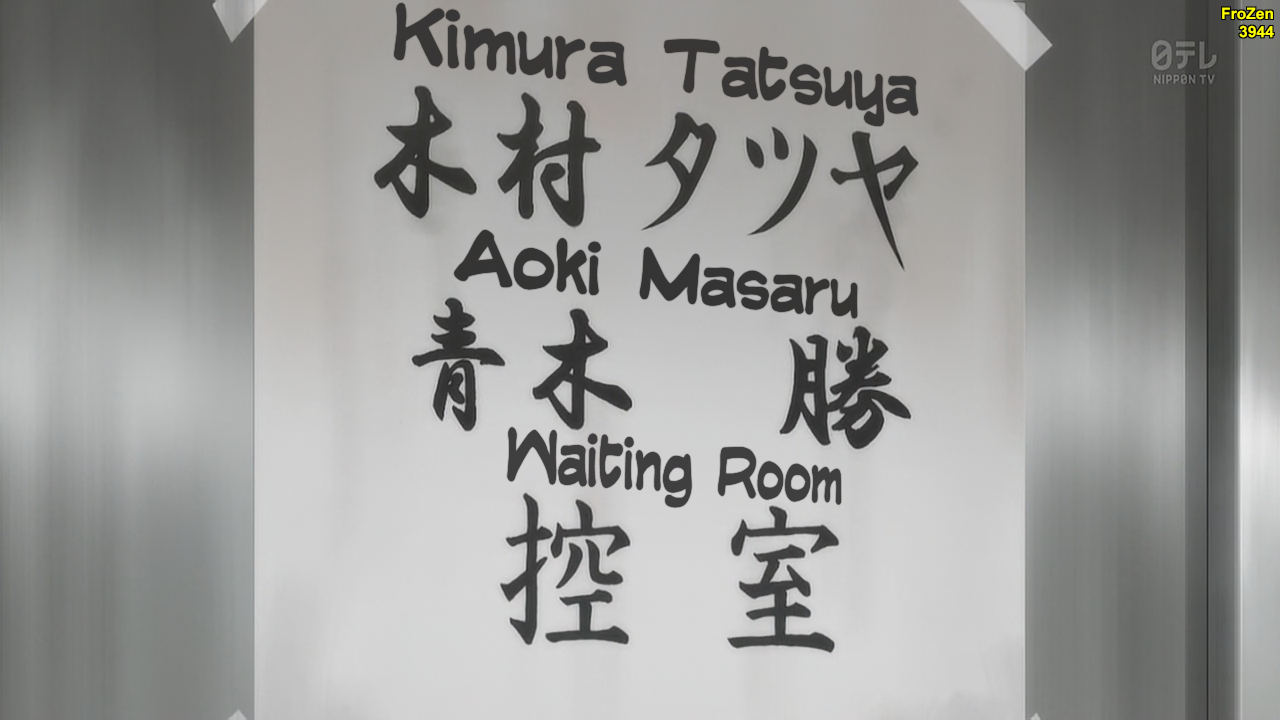 FroZen
3944
日テレ
NIPPON TV
Kimura Tatsuya
木村タツヤ
Aoki Masaru
青木 勝
Waiting Room
控室